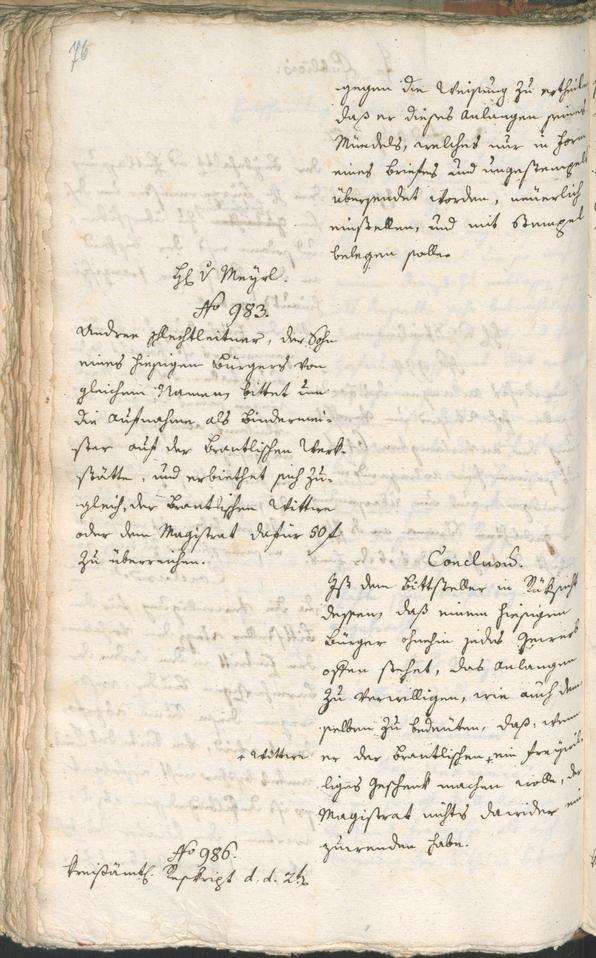 76
gegen die Weisung zu ertheilen
daß er dieses Anlangen seines
Mündels, welches nur in Form
eines Briefes und ungestempelt
übersendet worden, neüerlich
einstellen, und mit Stempel
belegen solle.
H. v Meyrl.
No 983.
Andree Plechleitner, der Sohn
eines hiesigen Bürgers von
gleichem Namen bittet um
die Aufnahme als Bindermei-
ster auf der Brantlischen Werk-
stätte, und erbiethet sich zu-
gleich, der Brantlischen Wittwe
oder dem Magistrat dafür 50 f
zu überreichen.
Conclusum.
Ist dem Bittsteller in Rüksicht
dessen, daß einem hiesigen
Bürger ohnehin jedes Gewerb
offen stehet, das Anlangen
zu verwilligen, wie auch dem-
selben zu bedeuten, daß, wenn
er der Brantlischen + ein freywil-
+ Wittwe
liges Geschenk machen wolle, der
Magistrat nichts dawider ein
zuwenden habe.
No 986.
Kreisämtl. Reskript d. d. 24